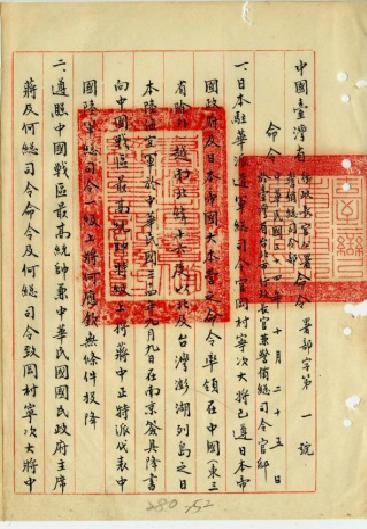 中國臺灣省行政長官公署
警備總司令部
命令 署部字第一號
命令 中華民國三十四年十月二十五日
於臺灣省台北市行政長官兼警備總司令官邸
一、日本駐華派遣軍總司令官岡村寧次大將已遵日本帝
國政府及日本帝國大本營之命令率領在中國(東三
省除外)越南北緯十六度以北及台灣澎湖列島之日
本陸海空軍於中華民國三十四年九月九日在南京簽具降書
向中國戰區最高統帥特級上將蔣中正特派代表中
國陸軍總司令一級上將何應欽無條件投降
二、遵照中國戰區最高統帥兼中華民國國民政府主席
蔣及何總司令命令及何總司令致岡村寧次大將中
280